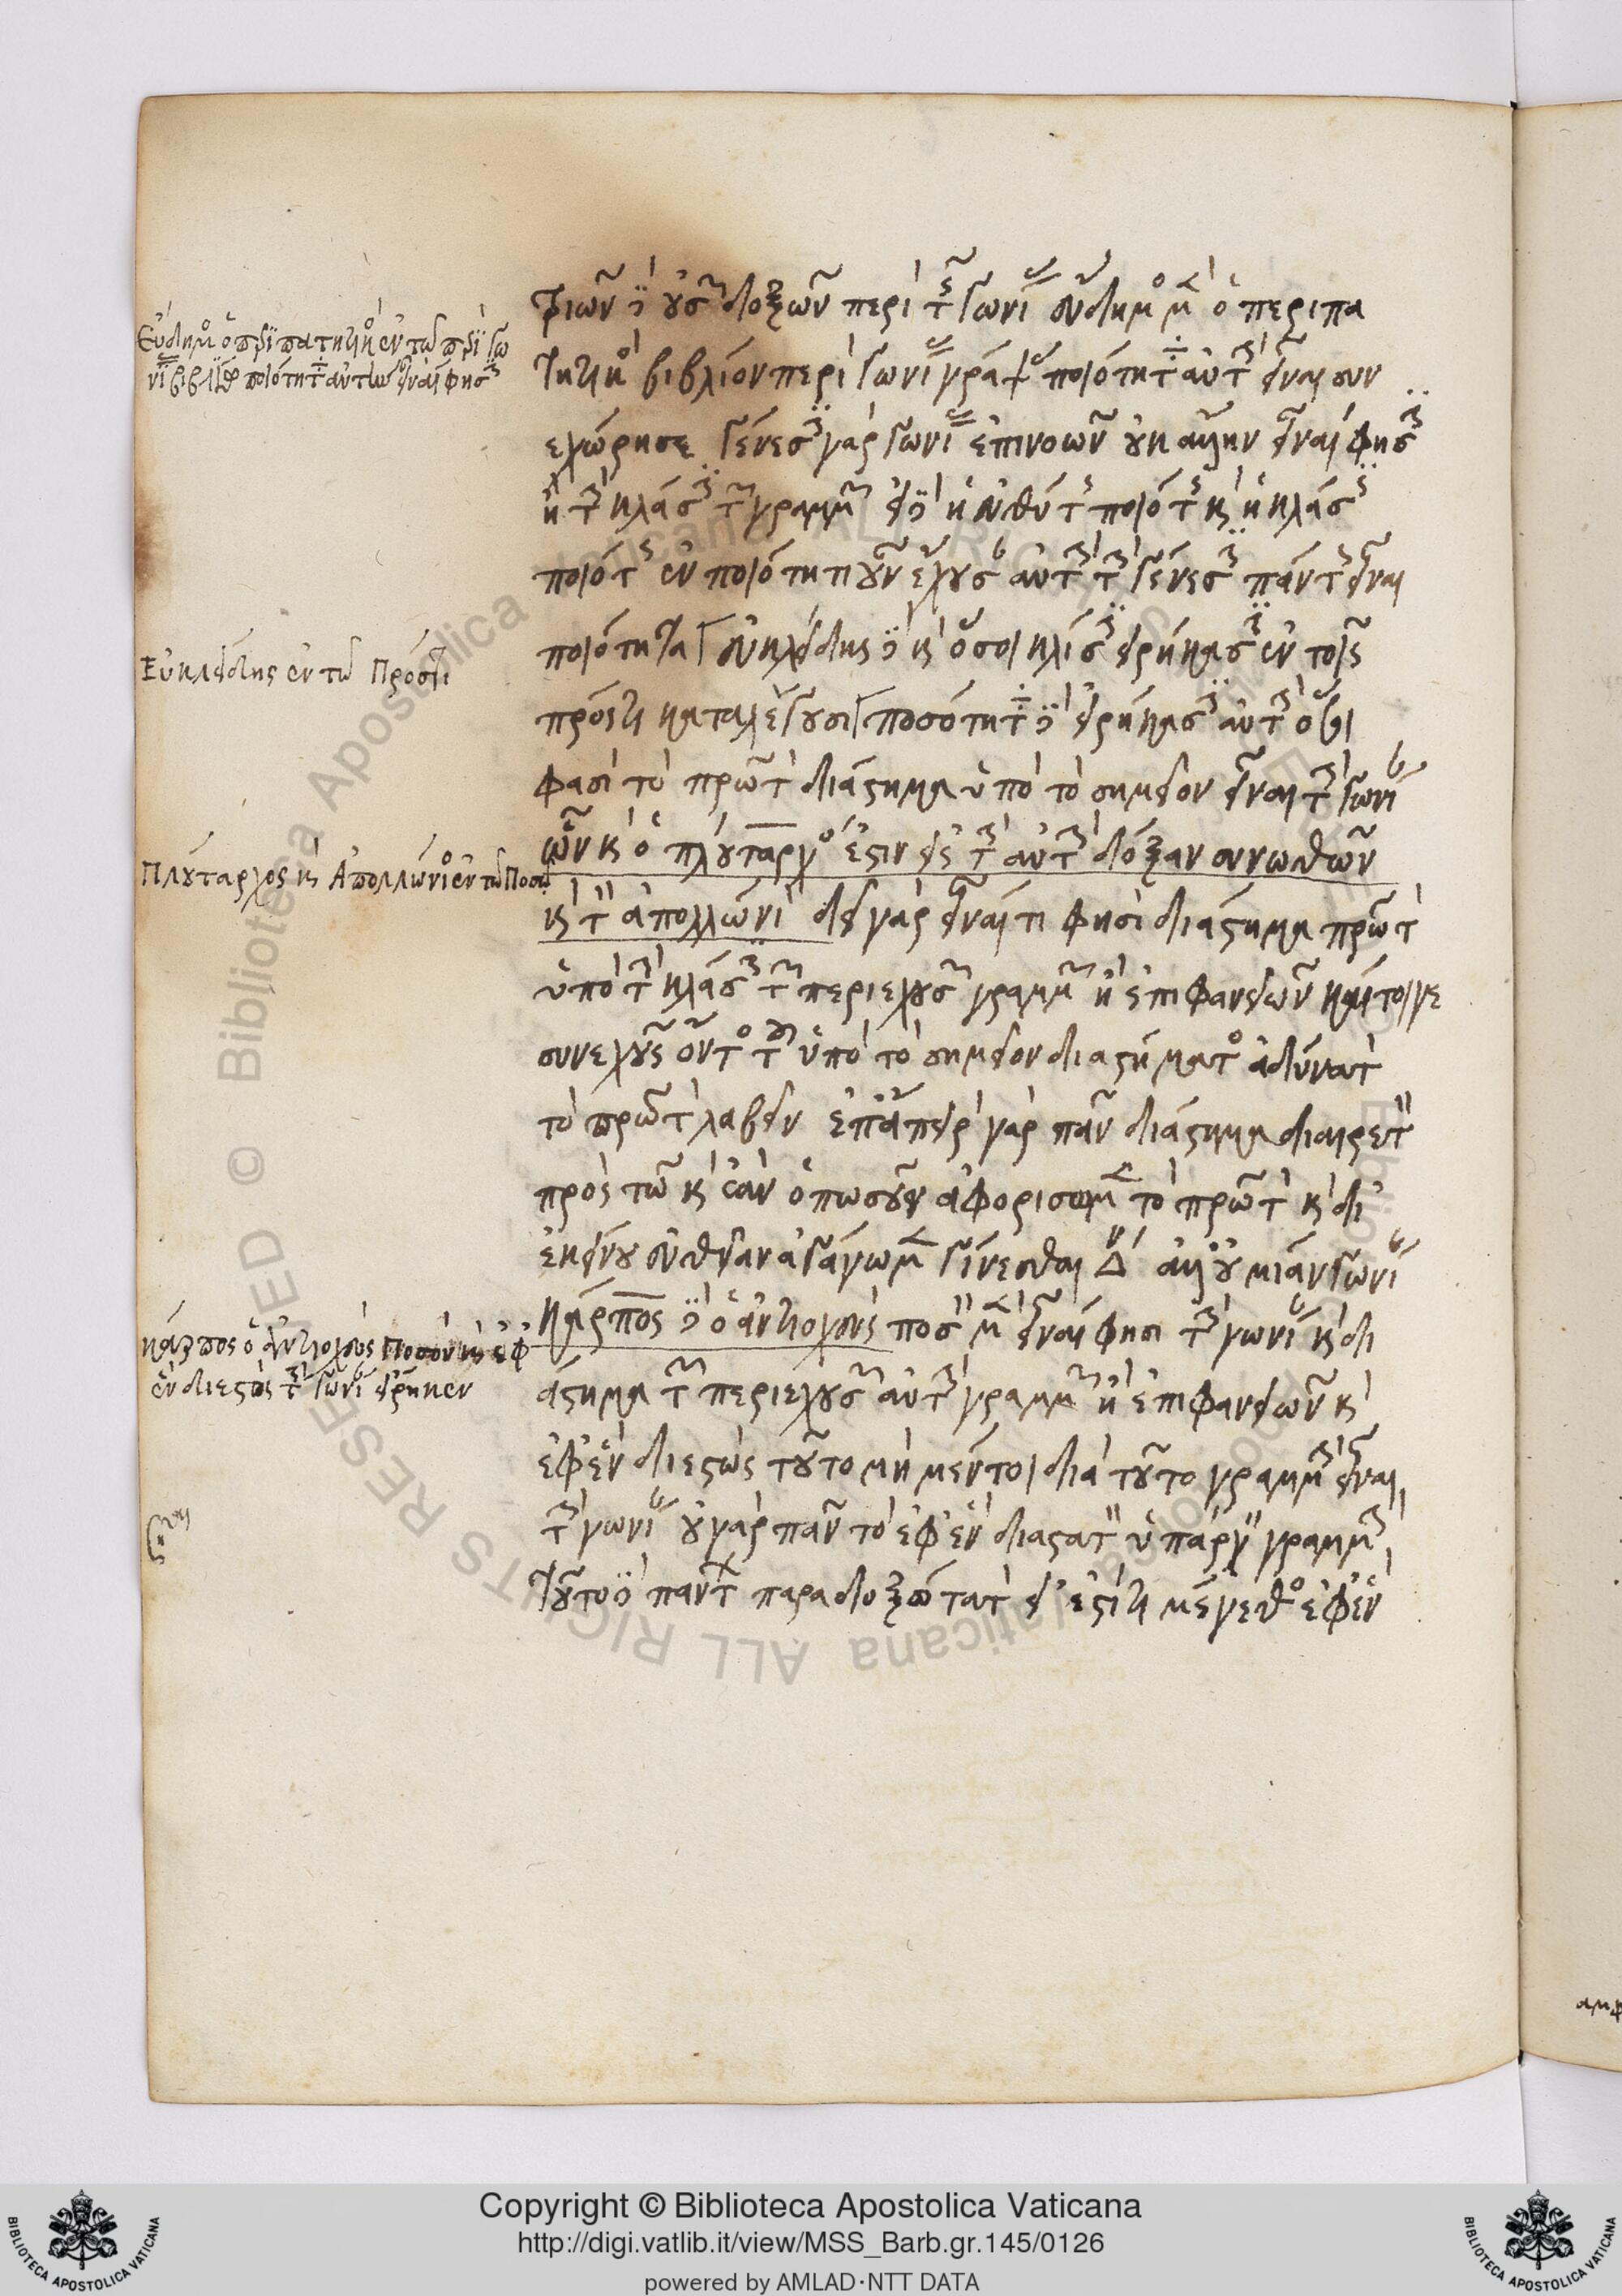 τριῶν δὲ οὐσῶν δοξῶν περὶ τῆς γωνίας εὔδημος μὲν ὁ περιπα
τητικὸς βιβλίον περὶ γωνίας γράψας ποιότητα αὐτὴν εἶναι συν
εχώρησε γένεσιν γὰρ γωνίας ἐπινοῶν οὐκ ἄλλην εἶναι φησὶν
ἢ τὴν κλάσιν τῶν γραμμῶν εἰ δὲ ἡ εὐθύτης ποιότης καὶ ἡ κλάσις
ποιότης ἐν ποιότητι οὖν ἔχουσα αὐτὴν τὴν γένεσιν πάντως εἶναι
ποιότητα εὐκλείδης δὲ καὶ ὅσοι κλίσιν εἰρήκασιν ἐν τοῖς
πρός τι καταλέγουσι ποσότητα δὲ εἰρήκασιν αὐτὴν ὅσοι
φασὶ τὸ πρῶτον διάστημα ὑπὸ τὸ σημεῖον εἶναι τὴν γωνίαν
ὧν καὶ ὁ πλούταρχός ἐστιν εἰς τὴν αὐτὴν δόξαν συνωθῶν
καὶ τὸν ἀπολλώνιον δεῖ γὰρ εἶναί τι φησὶ διάστημα πρῶτον
ὑπὸ τὴν κλάσιν τῶν περιεχουσῶν γραμμῶν ἢ ἐπιφανειῶν καίτοιγε
συνεχοῦς ὄντος τοῦ ὑπὸ τὸ σημεῖον διαστήματος ἀδύνατον
τὸ πρῶτον λαβεῖν ἐπ᾽ ἄπειρον γὰρ πᾶν διάστημα διαιρετόν
πρὸς τῷ καὶ ἐὰν ὁπωσοῦν ἀφορίσωμεν τὸ πρῶτον καὶ δι
ἐκείνου εὐθεῖαν ἀγάγωμεν γίνεσθαι Δον ἀλλ᾽ οὐ μίαν γωνίαν
κάρπος δὲ ὁ ἀντιοχεὺς ποσὸν μὲν εἶναί φησι τὴν γωνίαν καὶ δι
άστημα τῶν περιεχουσῶν αὐτὴν γραμμῶν ἢ ἐπιφανειῶν καὶ
ἐφ᾽ ἓν διεστὼς τοῦτο μὴ μέντοι διὰ τοῦτο γραμμὴν εἶναι
τὴν γωνίαν οὐ γὰρ πᾶν τὸ ἐφ᾽ ἓν διαστατὸν ὑπάρχειν γραμμήν
τοῦτο δὲ πάντων παραδοξότατον εἰ ἔσται τι μέγεθος ἐφ᾽ ἓν
Εὔδημος ὁ περιπατητικὸς ἐν τῷ περὶ γω
νίας βιβλίῳ ποιότητα αὐτὴν εἶναί φησιν
Εὐκλείδης ἐν τῷ Πρός τι
Πλούταρχος καὶ Ἀπολλώνιος ἐν τῷ Ποσῷ
κάρπος ὁ ἀντιοχεὺς Ποσὸν καὶ ἐφ
ἓν διεστὼς τὴν γωνίαν εἴρηκεν
Copyright © Biblioteca Apostolica Vaticana
http://digi.vatlib.it/view/MSS_Barb.gr.145/0126
powered by AMLAD·NTT DATA
BIBLIOTECA APOSTOLICA VATICANA
BIBLIOTECA APOSTOLICA VATICANA